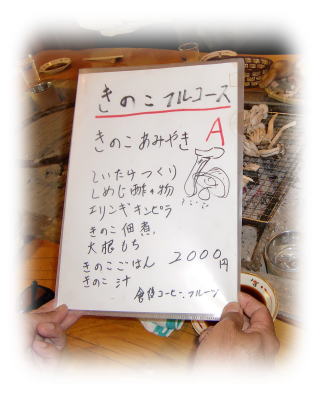 きのこフルコース
A
きのこあみやき
しいたけつくり
しめじ酢の物
エリンギキンピラ
きのこ佃煮
大根もち
きのこごはん 2000円
きのこ汁
コーヒー、フルーツ